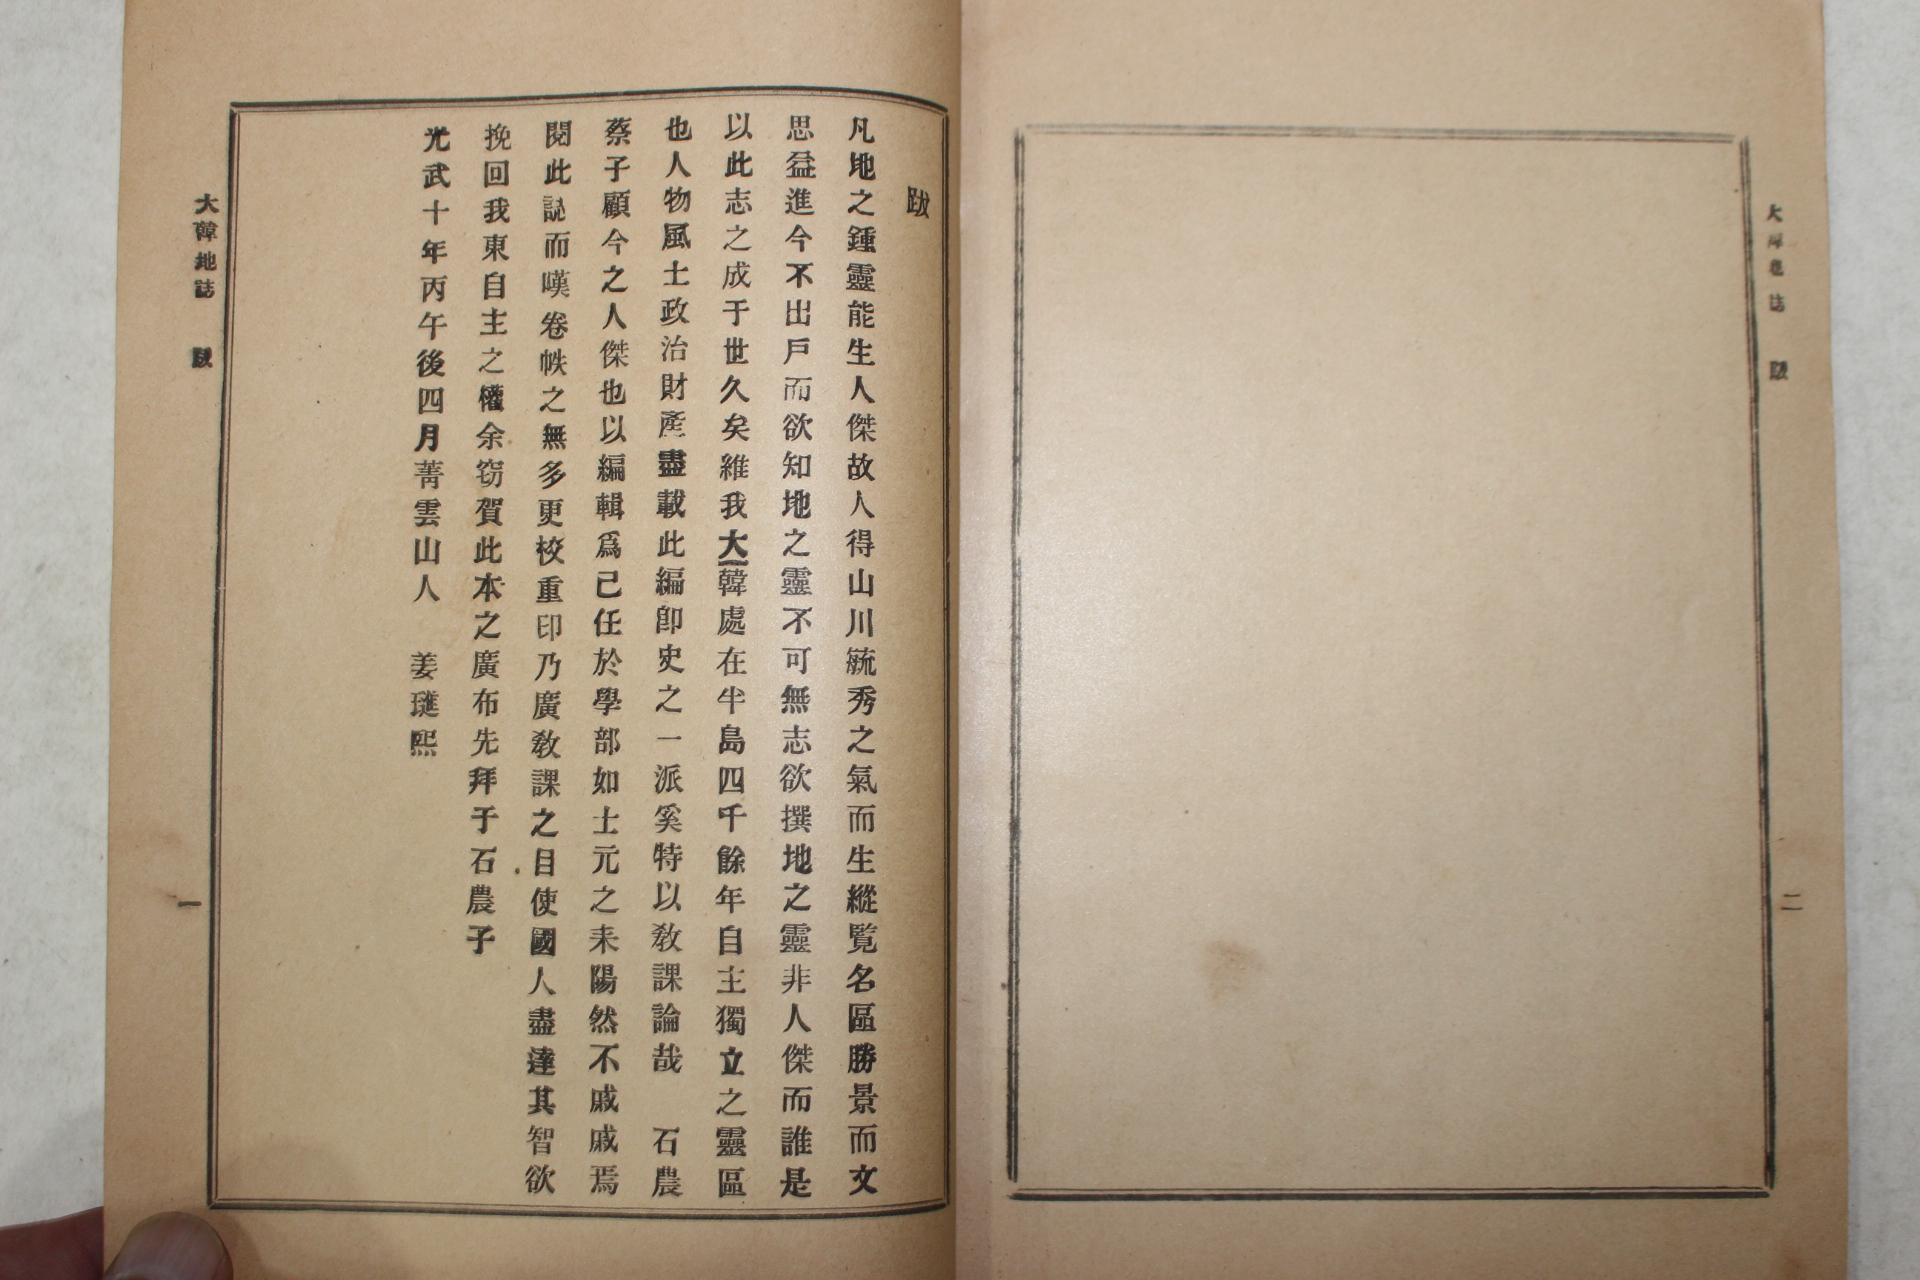 大韓地誌 跋 二
跋
凡地之鍾靈能生人傑故人得山川毓秀之氣而生縱覧名區勝景而文
思益進今不出戶而欲知地之靈不可無志欲撰地之靈非人傑而誰是
以此志之成于世久矣維我大韓處在半島四千餘年自主獨立之靈區
也人物風土政治財產盡載此編卽史之一派奚特以敎課論哉 石農
蔡子顧今之人傑也以編輯爲己任於學部如士元之耒陽然不戚戚焉
閱此誌而嘆卷帙之無多更校重印乃廣敎課之目使國人盡達其智欲
挽回我東自主之權余窃賀此本之廣布先拜于石農子
光武十年丙午後四月菁雲山人 姜璡熙
大韓地誌 跋 一